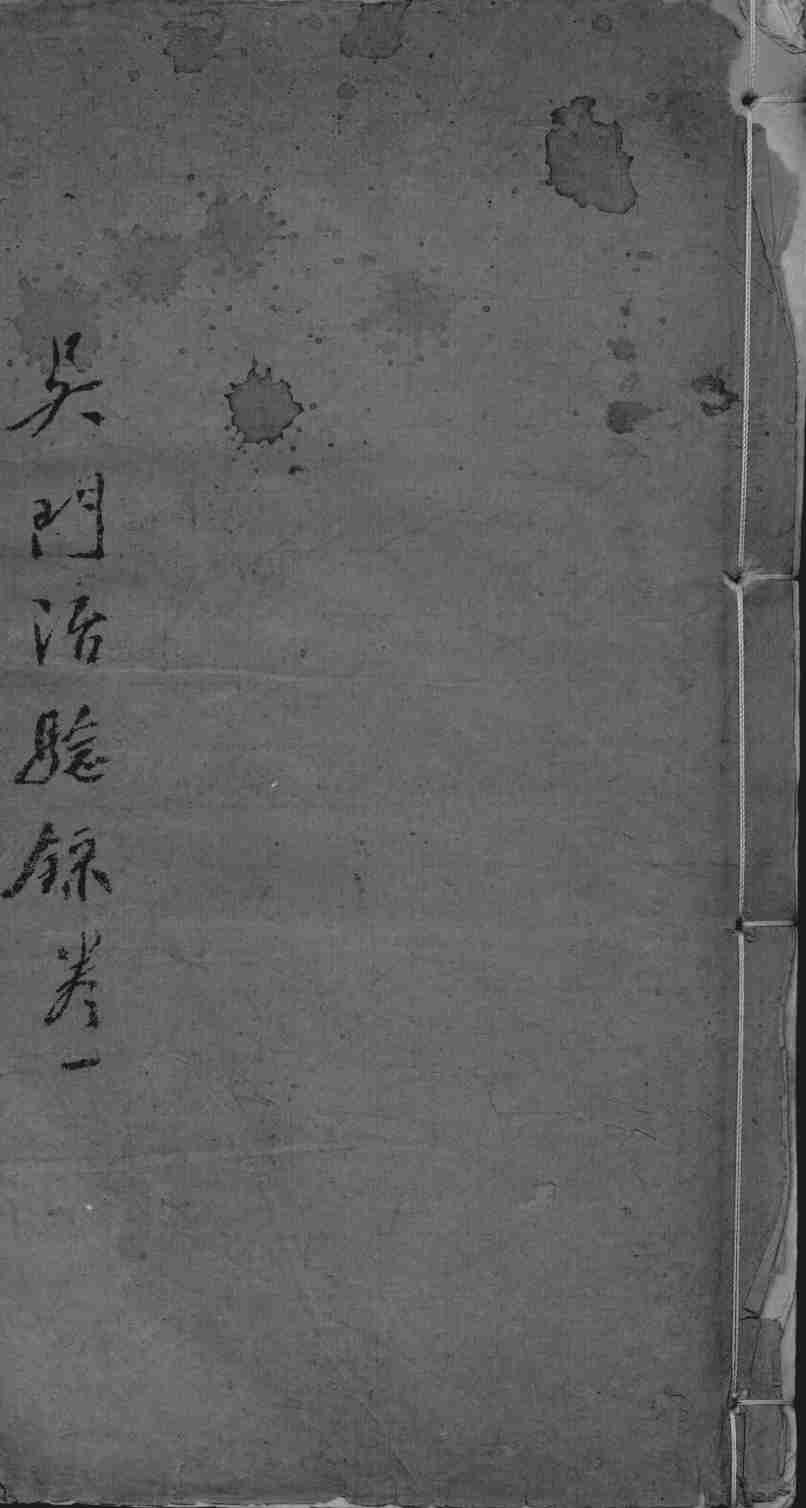 吳門治驗錄卷一